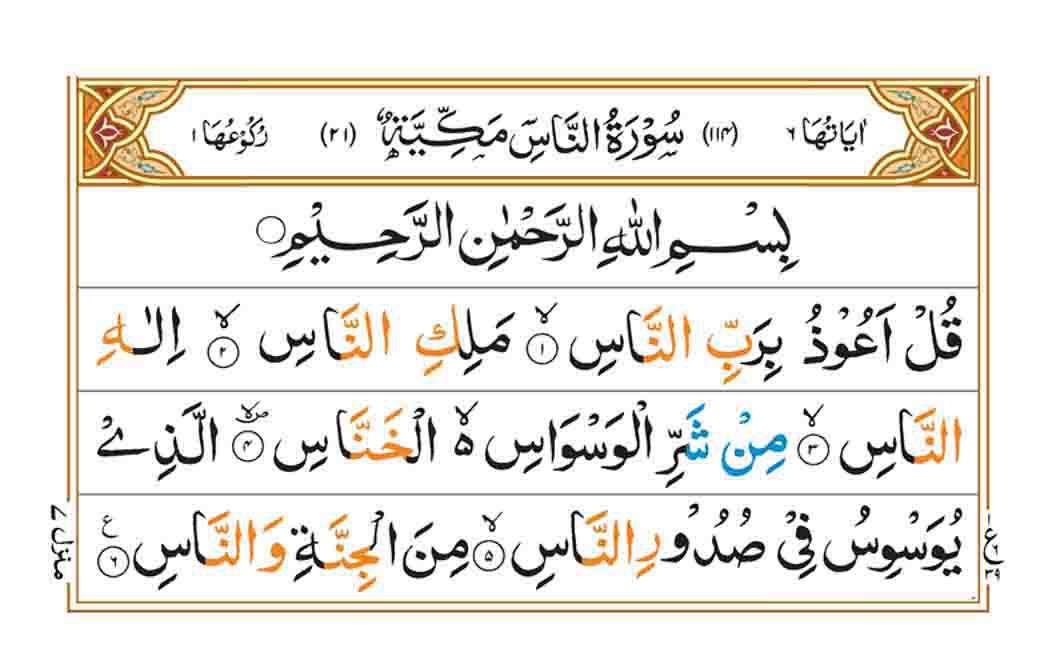 اٰیَاتُهَا ۶ (۱۱۴) سُوْرَةُ النَّاسِ مَكِّیَّةٌ (۲۱) رُكُوْعُهَا ۱
بِسْمِ اللّٰهِ الرَّحْمٰنِ الرَّحِیْمِ
قُلْ اَعُوْذُ بِرَبِّ النَّاسِ ۙ﴿۱﴾ مَلِكِ النَّاسِ ۙ﴿۲﴾ اِلٰهِ
النَّاسِ ۙ﴿۳﴾ مِنْ شَرِّ الْوَسْوَاسِ ۙ۬ الْخَنَّاسِ ﴿۴﴾ الَّذِیْ
یُوَسْوِسُ فِیْ صُدُوْرِ النَّاسِ ۙ﴿۵﴾ مِنَ الْجِنَّةِ وَالنَّاسِ ﴿۶﴾ ع
منزل ۷
ع ۳۹